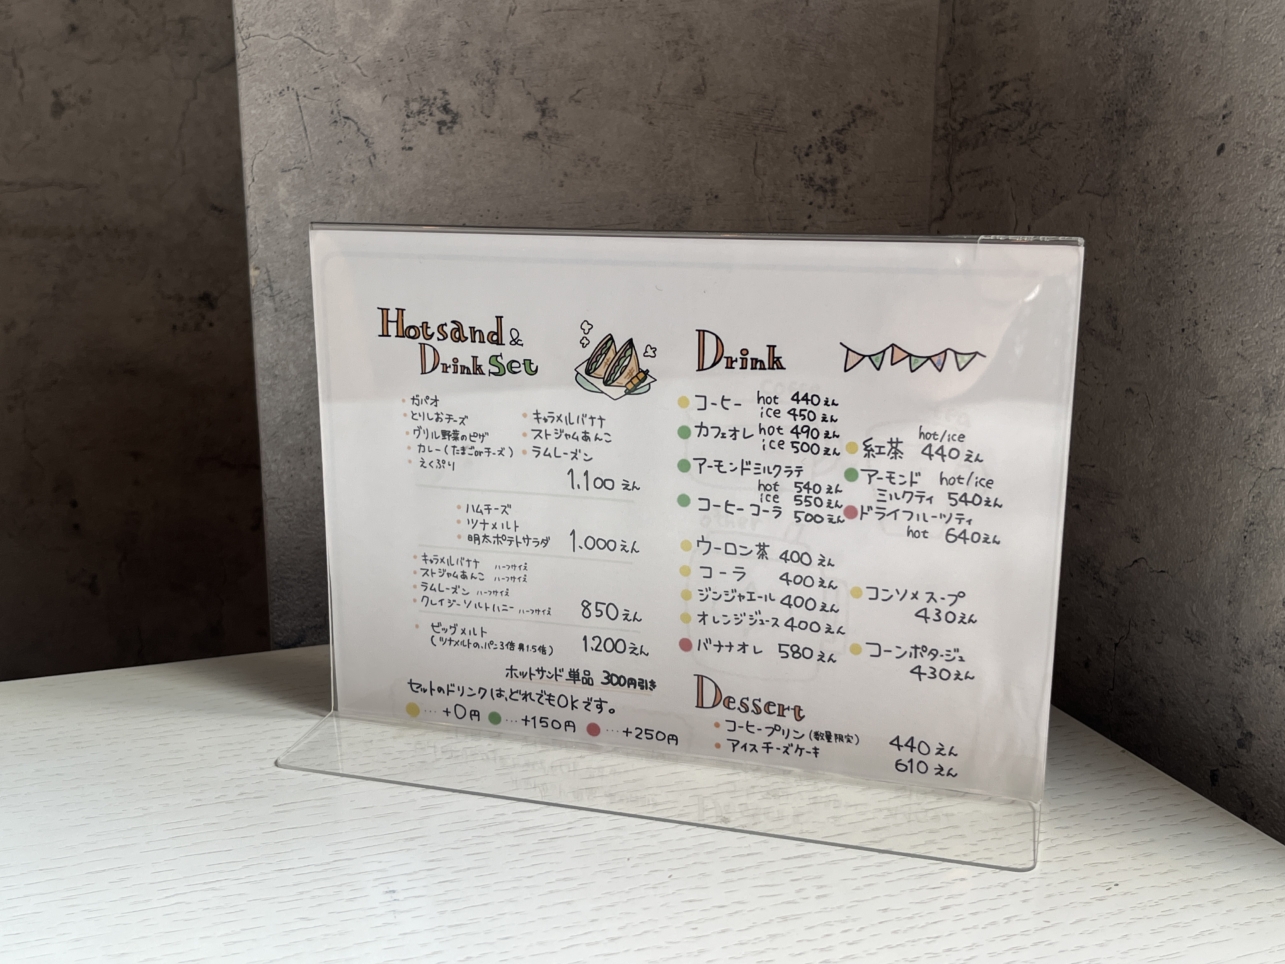 Hotsand &
Drink Set
・ガパオ
・とりしおチーズ
・グリル野菜のピザ
・カレー(たまごorチーズ)
・えくぷり
・キャラメルバナナ
・ストジャムあんこ
・ラムレーズン
1,100えん
・ハムチーズ
・ツナメルト
・明太ポテトサラダ
1,000えん
・キャラメルバナナ ハーフサイズ
・ストジャムあんこ ハーフサイズ
・ラムレーズン ハーフサイズ
・クレイジーソルトハニー ハーフサイズ
850えん
・ビッグメルト
(ツナメルトの、パン3倍 具1.5倍)
1,200えん
ホットサンド単品 300円引き
セットのドリンクは、どれでもOKです。
…+0円 …+150円 …+250円
Drink
コーヒー hot 440えん
ice 450えん
カフェオレ hot 490えん
ice 500えん
アーモンドミルクラテ
hot 540えん
ice 550えん
コーヒーコーラ 500えん
hot/ice
紅茶 440えん
アーモンド hot/ice
ミルクティ 540えん
ドライフルーツティ
hot 640えん
ウーロン茶 400えん
コーラ 400えん
ジンジャエール 400えん
オレンジジュース 400えん
バナナオレ 580えん
コンソメスープ
430えん
コーンポタージュ
430えん
Dessert
・コーヒープリン(数量限定) 440えん
・アイスチーズケーキ 610えん